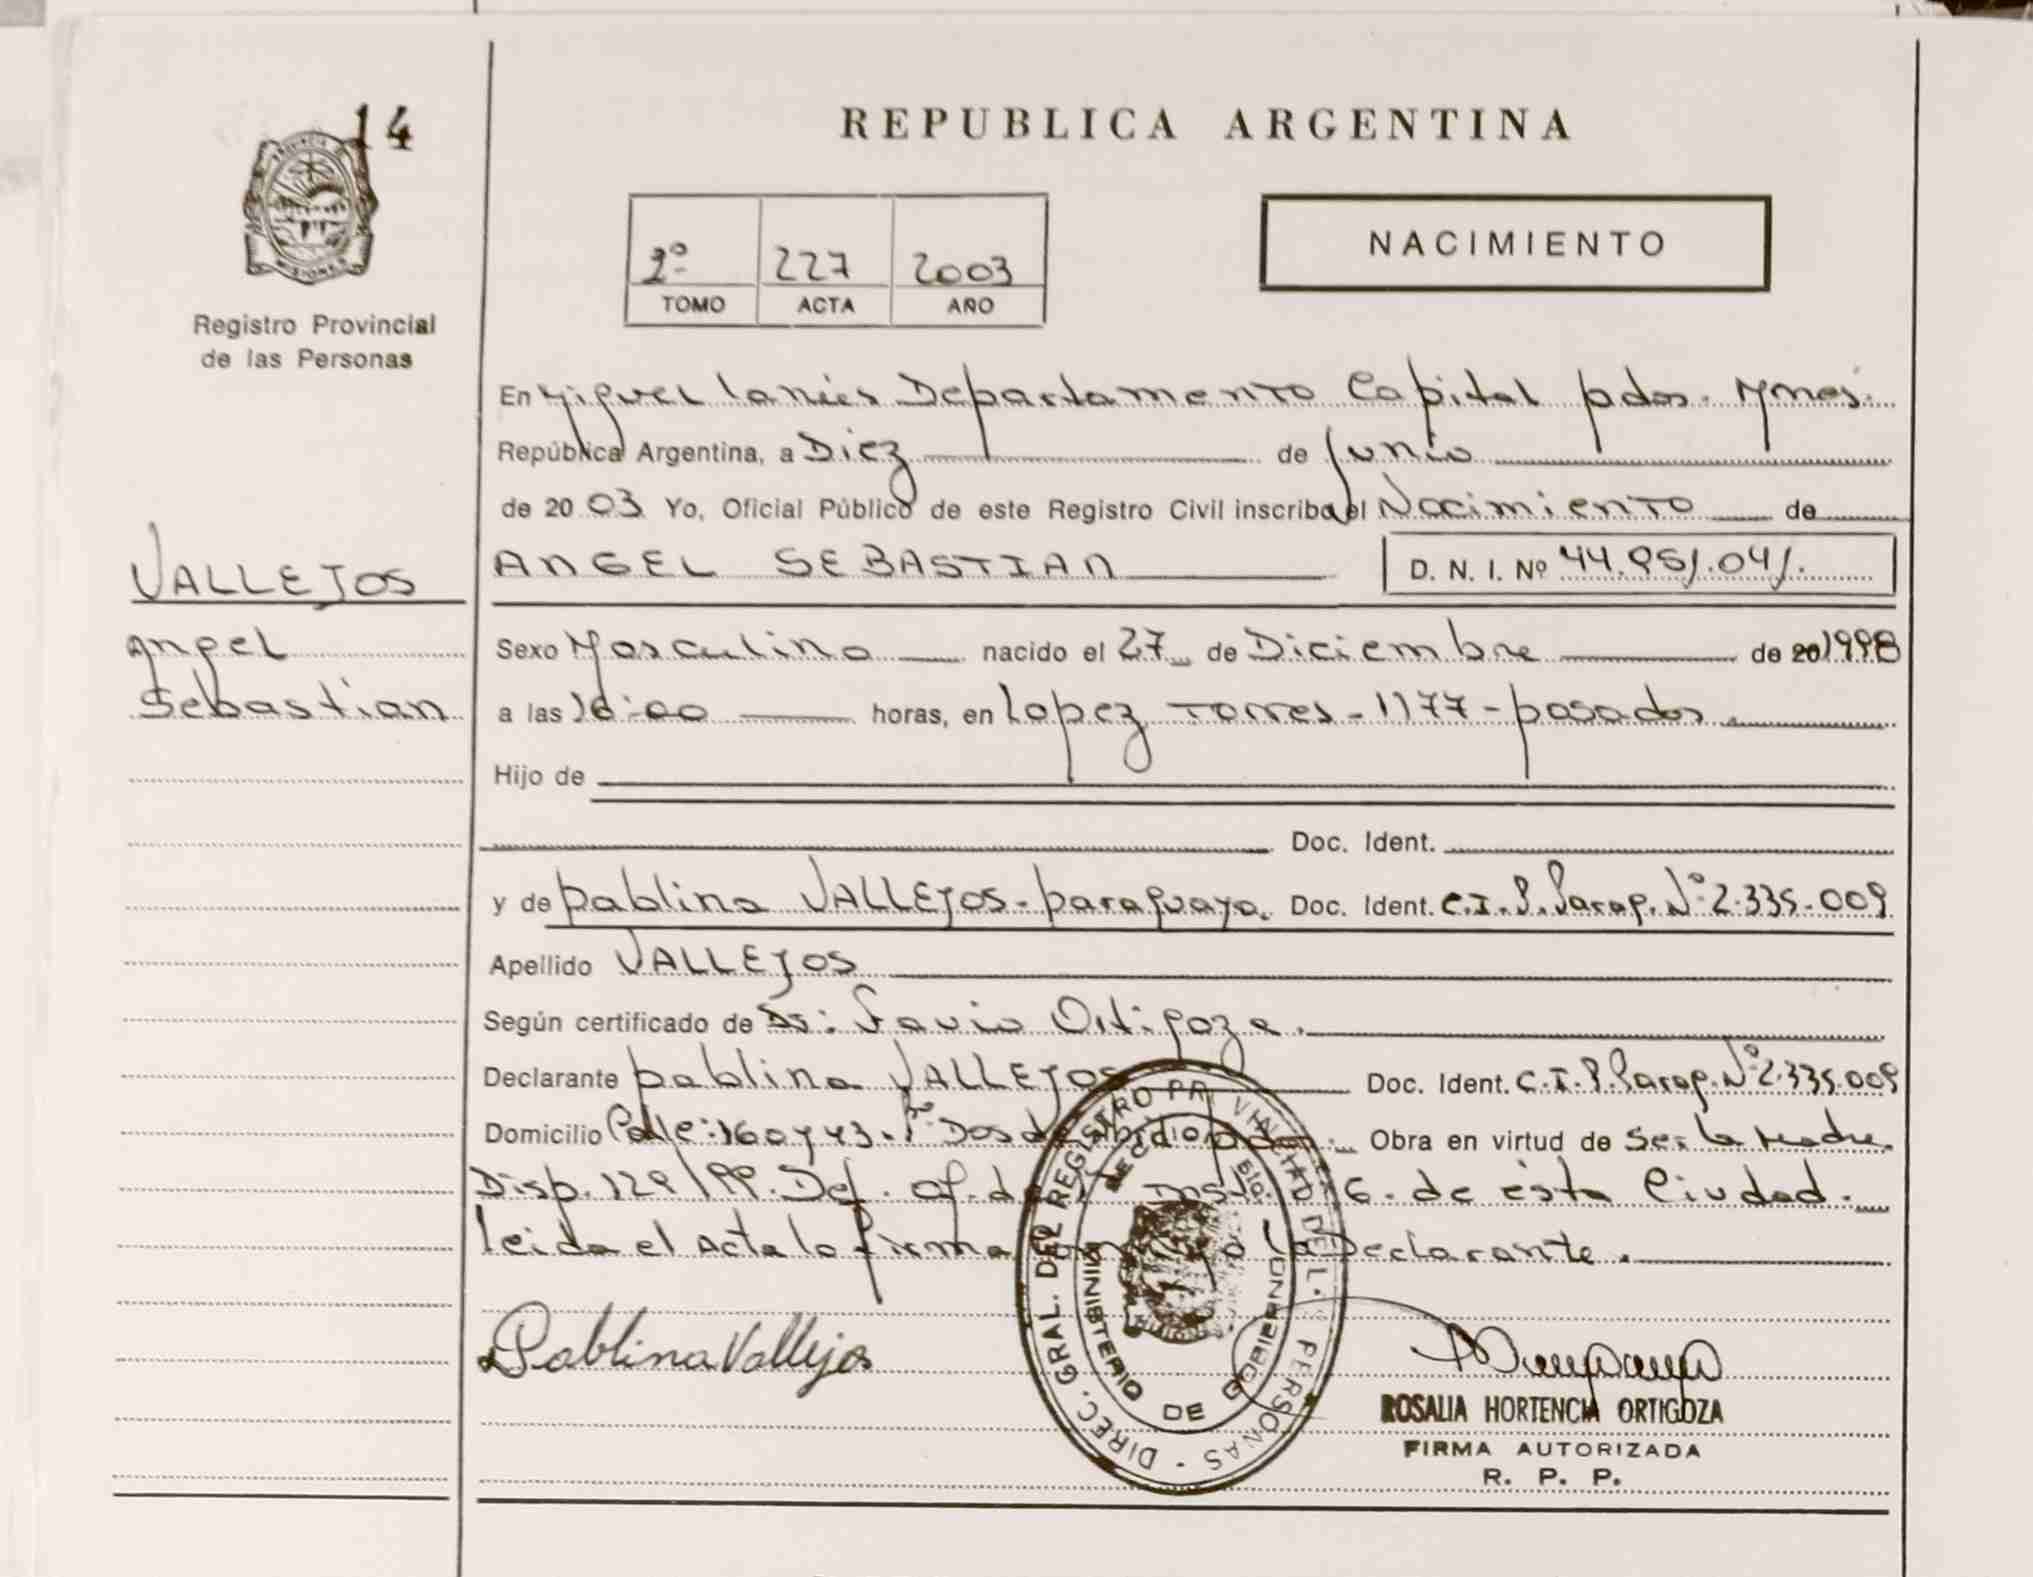 14
REPUBLICA ARGENTINA
NACIMIENTO
2º 227 2003
TOMO ACTA AÑO
Registro Provincial
de las Personas
En Miguel Lanús Departamento Capital pdas. Mnes.
República Argentina, a Diez de Junio
de 2003 Yo, Oficial Público de este Registro Civil inscribo el Nacimiento de
VALLEJOS
Angel
Sebastian
ANGEL SEBASTIAN D. N. I. Nº 44.951.041.
Sexo Masculino nacido el 27 de Diciembre de 20 1998
a las 16:00 horas, en Lopez Torres - 1177 - posadas.
Hijo de
Doc. Ident.
y de pablina VALLEJOS - paraguaya. Doc. Ident. C.I.P. Parag. Nº 2.335.009
Apellido VALLEJOS
Según certificado de Dr: Favio Ortigoza.
Declarante pablina VALLEJOS Doc. Ident. C.I.P. Parag. Nº 2.335.009
Domicilio Calle: 160 y 43. Bº Dos de Obra en virtud de Ser la Madre
Disp. 129/99. Def. of. de 6. de ésta Ciudad.
leida el Acta lo firma la Declarante.
Pablina Vallejos
DIREC. GRAL. DEL REGISTRO PROVINCIAL DE LAS PERSONAS
MINISTERIO DE GOBIERNO
MISIONES
ROSALIA HORTENCIA ORTIGOZA
FIRMA AUTORIZADA
R. P. P.